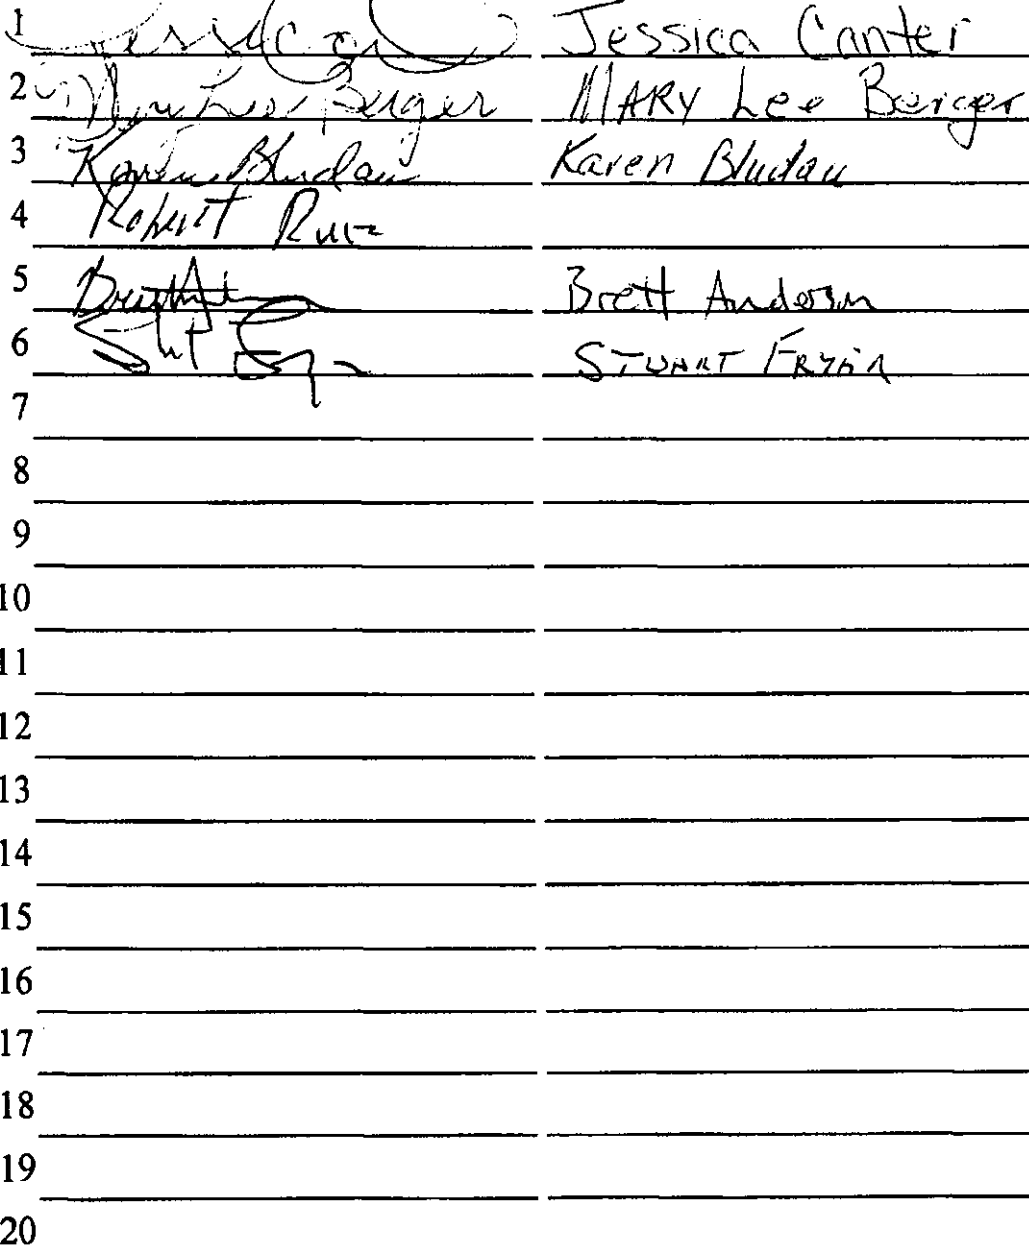 1 Jessica Canter
2 Mary Lee Berger MARY Lee Berger
3 Karen Bludau Karen Bludau
4 Robert
5 Brett Anderson
6 STUART
7
8
9
10
11
12
13
14
15
16
17
18
19
20